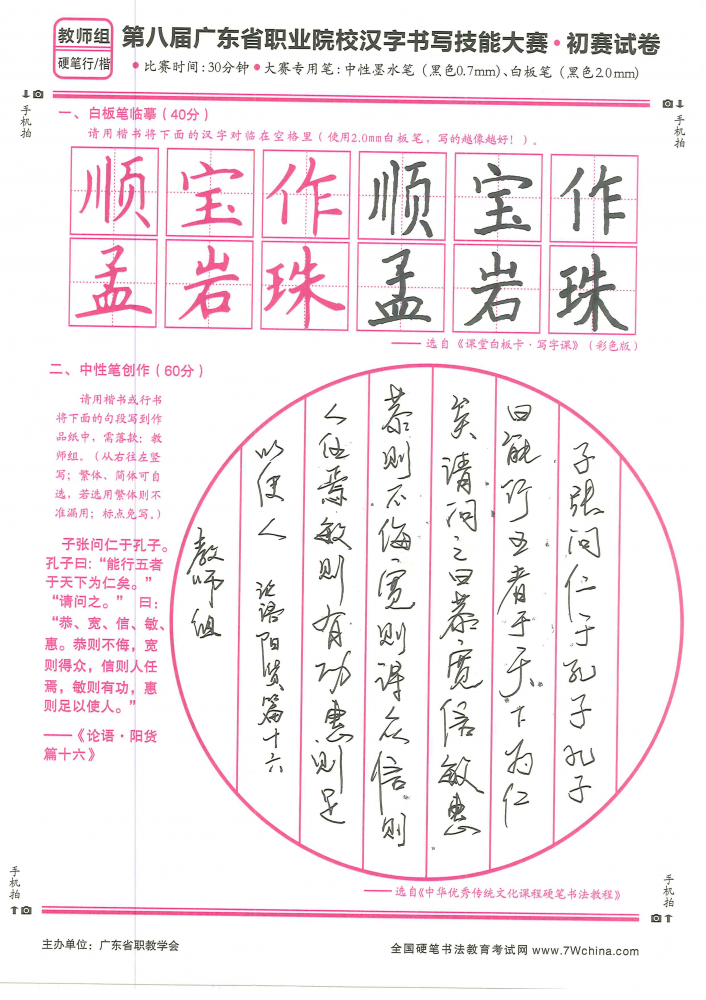 教师组
硬笔行/楷
第八届广东省职业院校汉字书写技能大赛•初赛试卷
•比赛时间:30分钟•大赛专用笔:中性墨水笔(黑色0.7mm)、白板笔(黑色2.0mm)
手机拍
手机拍
一、白板笔临摹(40分)
请用楷书将下面的汉字对临在空格里(使用2.0mm白板笔,写的越像越好!)。
顺宝作顺宝作
孟岩珠孟岩珠
——选自《课堂白板卡·写字课》(彩色版)
二、中性笔创作(60分)
请用楷书或行书
将下面的句段写到作
品纸中,需落款:教
师组。(从右往左竖
写;繁体、简体可自
选,若选用繁体则不
准漏用;标点免写。)
子张问仁于孔子。
孔子曰:“能行五者
于天下为仁矣。”
“请问之。” 曰:
“恭、宽、信、敏、
惠。恭则不侮,宽
则得众,信则人任
焉,敏则有功,惠
则足以使人。”
——《论语·阳货
篇十六》
子张问仁于孔子孔子
曰能行五者于天下为仁
矣请问之曰恭宽信敏惠
恭则不侮宽则得众信则
人任焉敏则有功惠则足
以使人 论语阳货篇十六
教师组
——选自《中华优秀传统文化课程硬笔书法教程》
手机拍
手机拍
主办单位:广东省职教学会
全国硬笔书法教育考试网 www.7Wchina.com